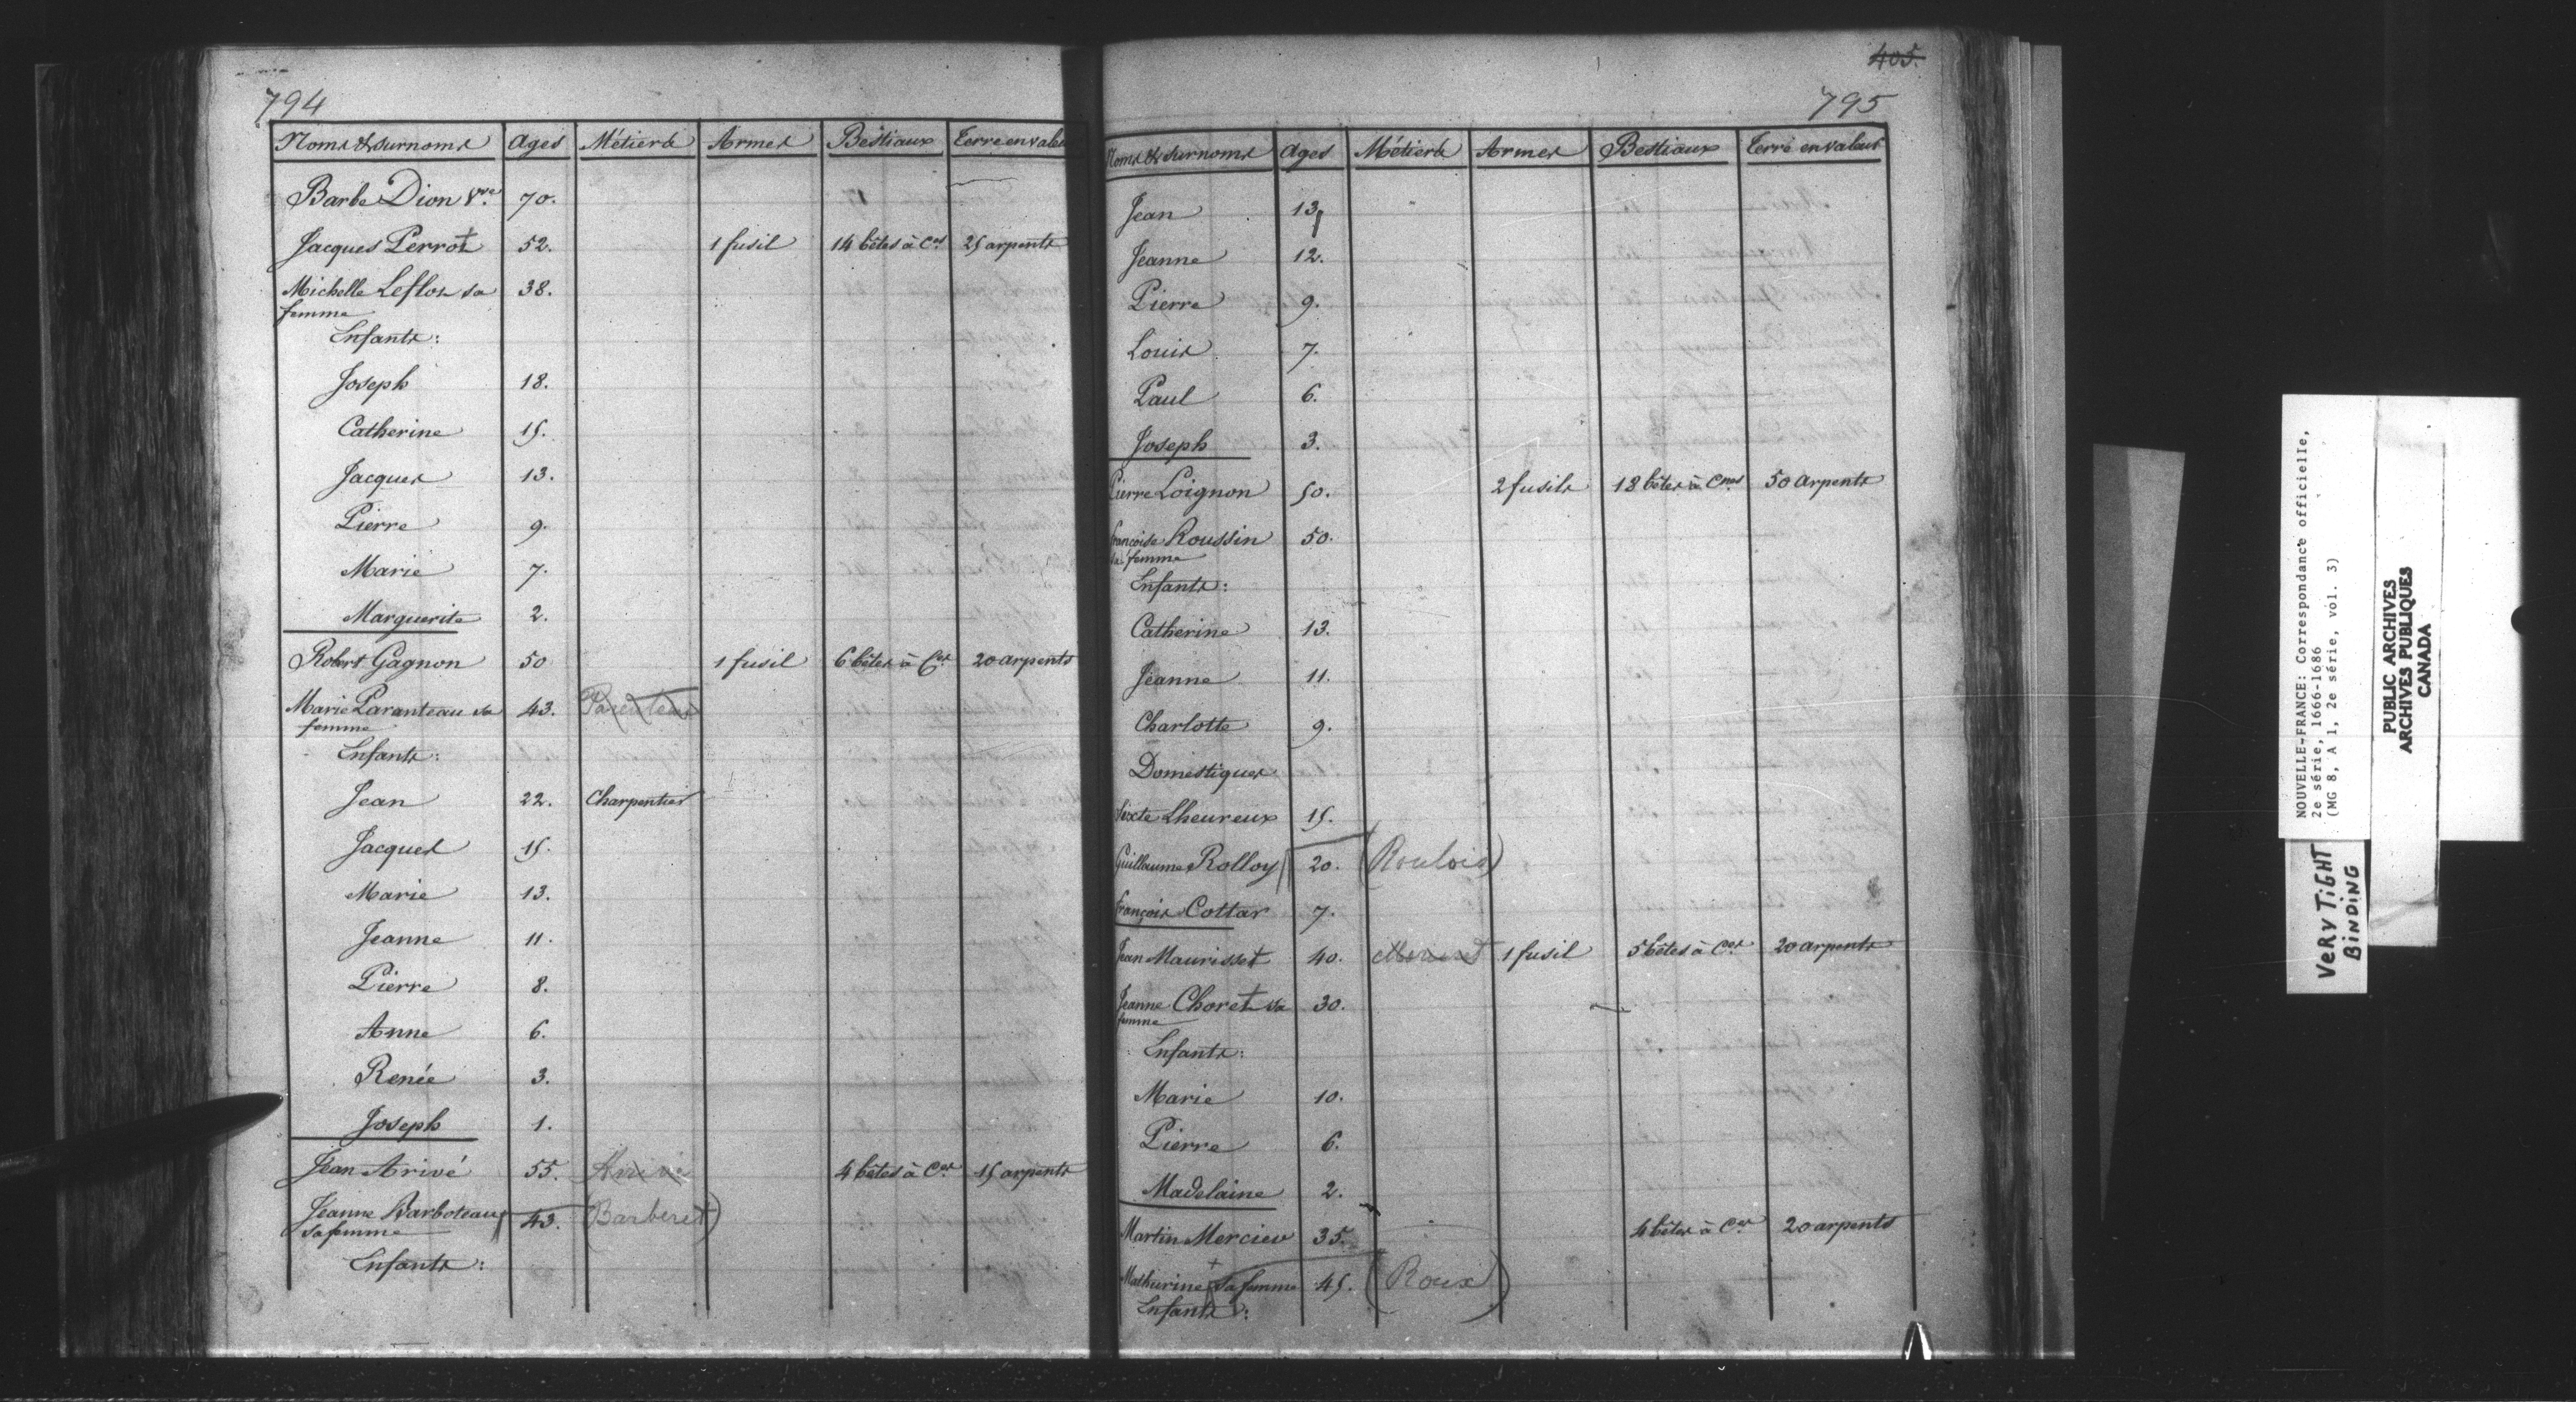 794
Noms & surnoms Ages Métiers Armes Bestiaux Terre en valeu
Barbe Dion Vve. 70.
Jacques Perrot 52. 1 fusil 14 bêtes à Ces 25 arpents
Michelle Leflot sa 38.
femme
Enfants:
Joseph 18.
Catherine 15.
Jacques 13.
Pierre 9.
Marie 7.
Marguerite 2.
Robert Gagnon 50 1 fusil 6 bêtes à Ces 20 arpents
Marie Paranteau sa 43. Parenteau
femme
Enfants:
Jean 22. Charpentier
Jacques 15.
Marie 13.
Jeanne 11.
Pierre 8.
Anne 6.
Renée 3.
Joseph 1.
Jean Arivé 55. 4 bêtes à Ces 15 arpents
Jeanne Barboteau 43. (Barberet)
sa femme
Enfants:
405.
795
Noms & surnoms Ages Métiers Armes Bestiaux Terre en valeur
Jean 13
Jeanne 12.
Pierre 9.
Louis 7.
Paul 6.
Joseph 3.
Pierre Loignon 50. 2 fusils 18 bêtes à Cnes 50 arpents
françoise Roussin 50.
sa femme
Enfants:
Catherine 13.
Jeanne 11.
Charlotte 9.
Domestiques
Sixte Lheureux 15.
Guillaume Rolloy 20. (Roulois)
françois Cottar 7.
Jean Maurisset 40. 1 fusil 5 bêtes à Ces 20 arpents
Jeanne Choret sa 30.
femme
Enfants:
Marie 10.
Pierre 6.
Madelaine 2.
Martin Mercieu 35. 4 bêtes à Ces 20 arpents
Mathurine sa femme 45. (Roux)
Enfants:
NOUVELLE-FRANCE: Correspondance officielle,
2e série, 1666-1686
(MG 8, A 1, 2e série, vol. 3)
VERY TIGHT
BINDING
PUBLIC ARCHIVES
ARCHIVES PUBLIQUES
CANADA